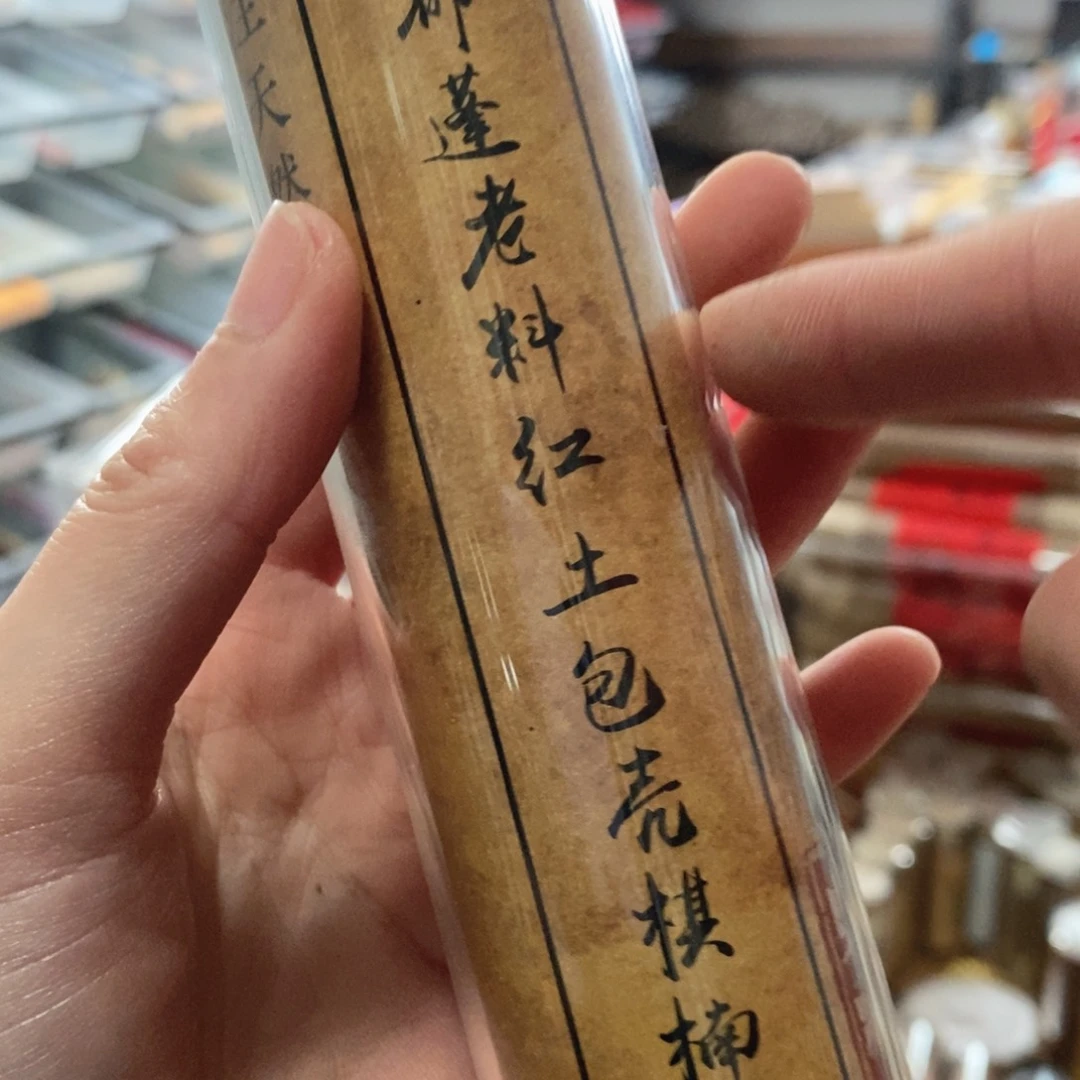 蓬老料红土包壳棋楠
天然